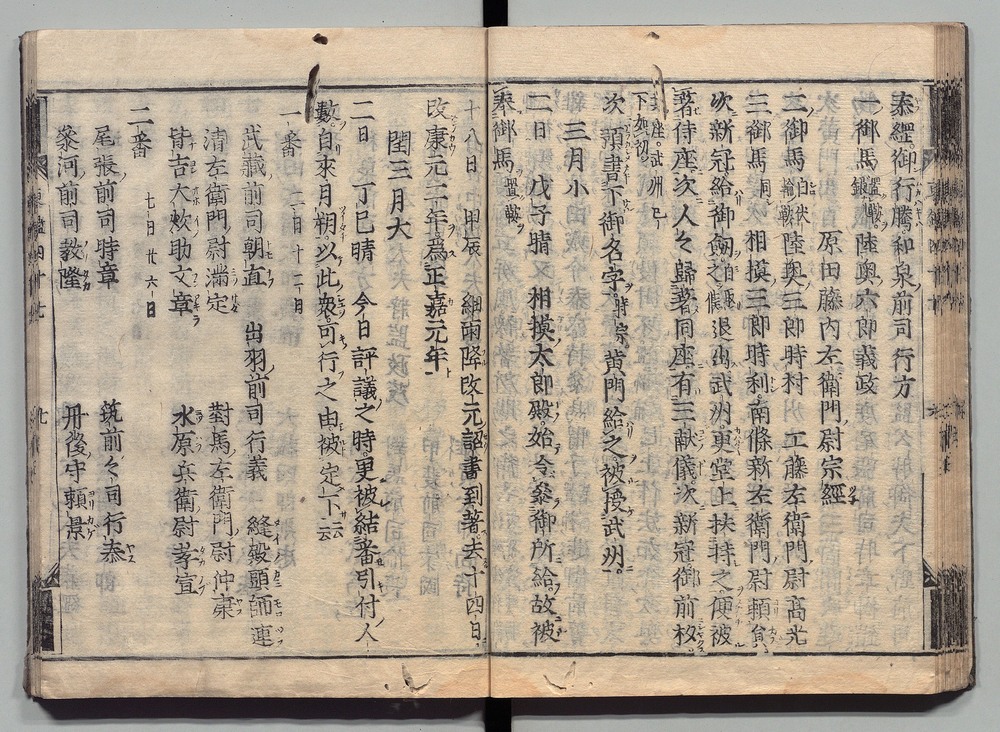 泰經御行騰和泉前司行方
一御馬置鞍銀陸奧六郎義政
原田藤内左衛門尉宗經
二御馬白伏輪鞍陸奥三郎時村 工藤左衛門尉高光
三御馬同相摸三郎時利南條新左衛門尉頼員
次新冠給御劔退出武州更堂上扶持之便被
著侍座次人々歸著同座有三献儀次新冠御前
下如初
次頭書下御名字時宗黄門給之被授武州
三月小
二日 戊子晴 相摸太郎殿始令参御所給故被
奉御馬置鞍
十八日 甲辰 細雨降改元詔書到著去十四日
改康元二年爲正嘉元年
閏三月大
二日 丁巳晴 今日評議之時更被結番引付人
數自來月朔以此衆可行之由被定下云云
一番 二日 十二日
武藏前司朝直 出羽前司行義 縫殿頭師連
清左衛門尉滿定 對馬左衛門尉仲康
皆吉大炊助文章 水原兵衛尉孝宣
二番 七日 廿六日
尾張前司時章 筑前々司行泰
參河前司教隆 丹後守頼景